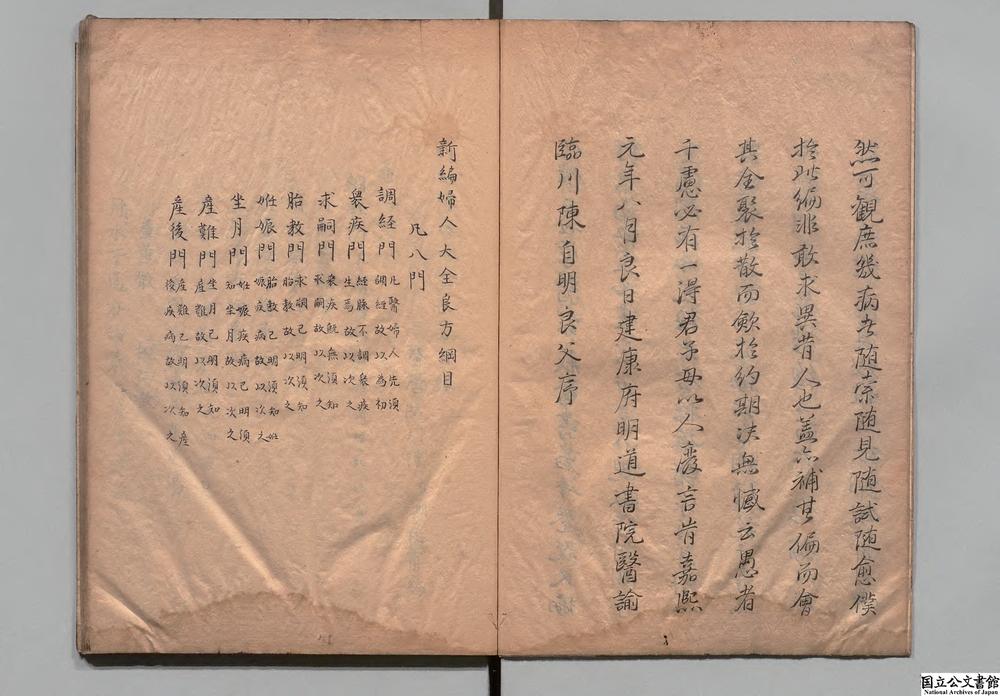 然可觀庶幾病者随索随見随試随愈僕
扵此編非敢求異昔人也盖亦補其偏而會
其全聚扵散而歛扵約期决無憾云愚者
千慮必有一淂君子毋以人廢言旹嘉熙
元年八月良日建康府明道書院醫諭
臨川陳自明良父序
新編婦人大全良方綱目
凡八門
調经門 凡醫婦人先須
調經故以為初
衆疾門 經脉不調衆疾
生焉故以次之
求嗣門 衆疾既無須知
求嗣故以次之
胎教門 求嗣已明須知
胎教故以次之
姙娠門 胎教已明須知姙
娠疾病故以次之
坐月門 姙娠疾病已明須
知坐月故以次之
產難門 坐月已明須知
產難故以次之
產後門 產難已明須知產
後疾病故以次之
国立公文書館
National Archives of Japan